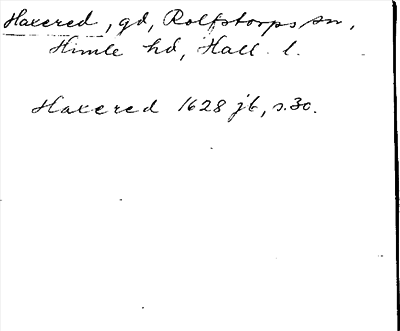 Haxered, gd, Rolfstorps sn,
Himle hd, Hall. l.
Haxered 1628 jb, s. 30.